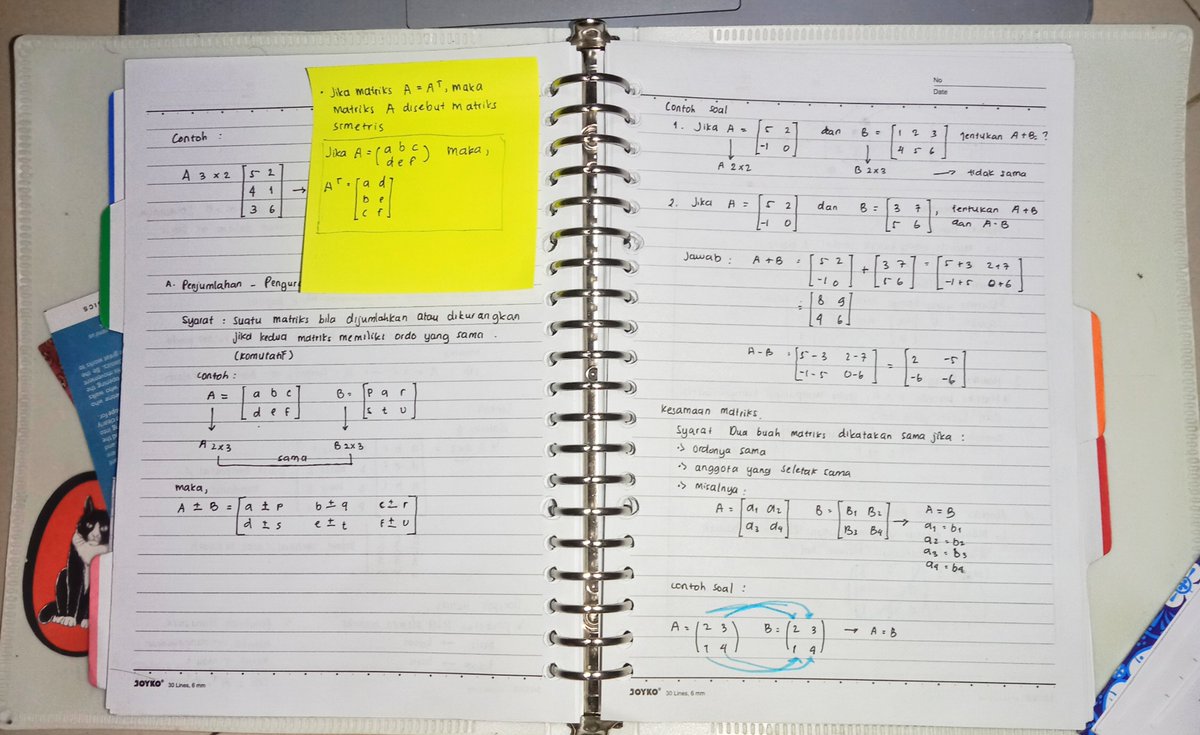 Contoh :
A 3 x 2 [5 2
4 1 →
3 6]
• Jika matriks A = Aᵀ, maka
matriks A disebut matriks
simetris
Jika A = (a b c maka,
d e f)
Aᵀ = [a d
b e
c f]
A. Penjumlahan -
Syarat : Suatu matriks bila dijumlahkan atau dikurangkan
jika kedua matriks memiliki ordo yang sama.
(komutatif)
contoh :
A = [a b c B = [p q r
d e f] s t u]
A 2x3 B 2x3
sama
maka,
A ± B = [a ± p b ± q c ± r
d ± s e ± t f ± u]
JOYKO® 30 Lines, 6 mm
No
Date
Contoh soal
1. Jika A = [5 2 dan B = [1 2 3 tentukan A+B= ?
-1 0] 4 5 6]
A 2x2 B 2x3 → tidak sama
2. Jika A = [5 2 dan B = [3 7 , tentukan A+B
-1 0] 5 6] dan A-B
Jawab : A+B = [5 2 + [3 7 = [5+3 2+7
-1 0] 5 6] -1+5 0+6]
= [8 9
4 6]
A-B = [5-3 2-7 = [2 -5
-1-5 0-6] -6 -6]
Kesamaan matriks.
Syarat Dua buah matriks dikatakan sama jika :
-> ordonya sama
-> anggota yang seletak sama
-> misalnya :
A = [a₁ a₂ B = [B₁ B₂ → A = B
a₃ a₄] B₃ B₄] a₁ = b₁
a₂ = b₂
a₃ = b₃
a₄ = b₄
contoh soal :
A = (2 3 B = (2 3 → A = B
1 4) 1 4)
JOYKO® 30 Lines, 6 mm